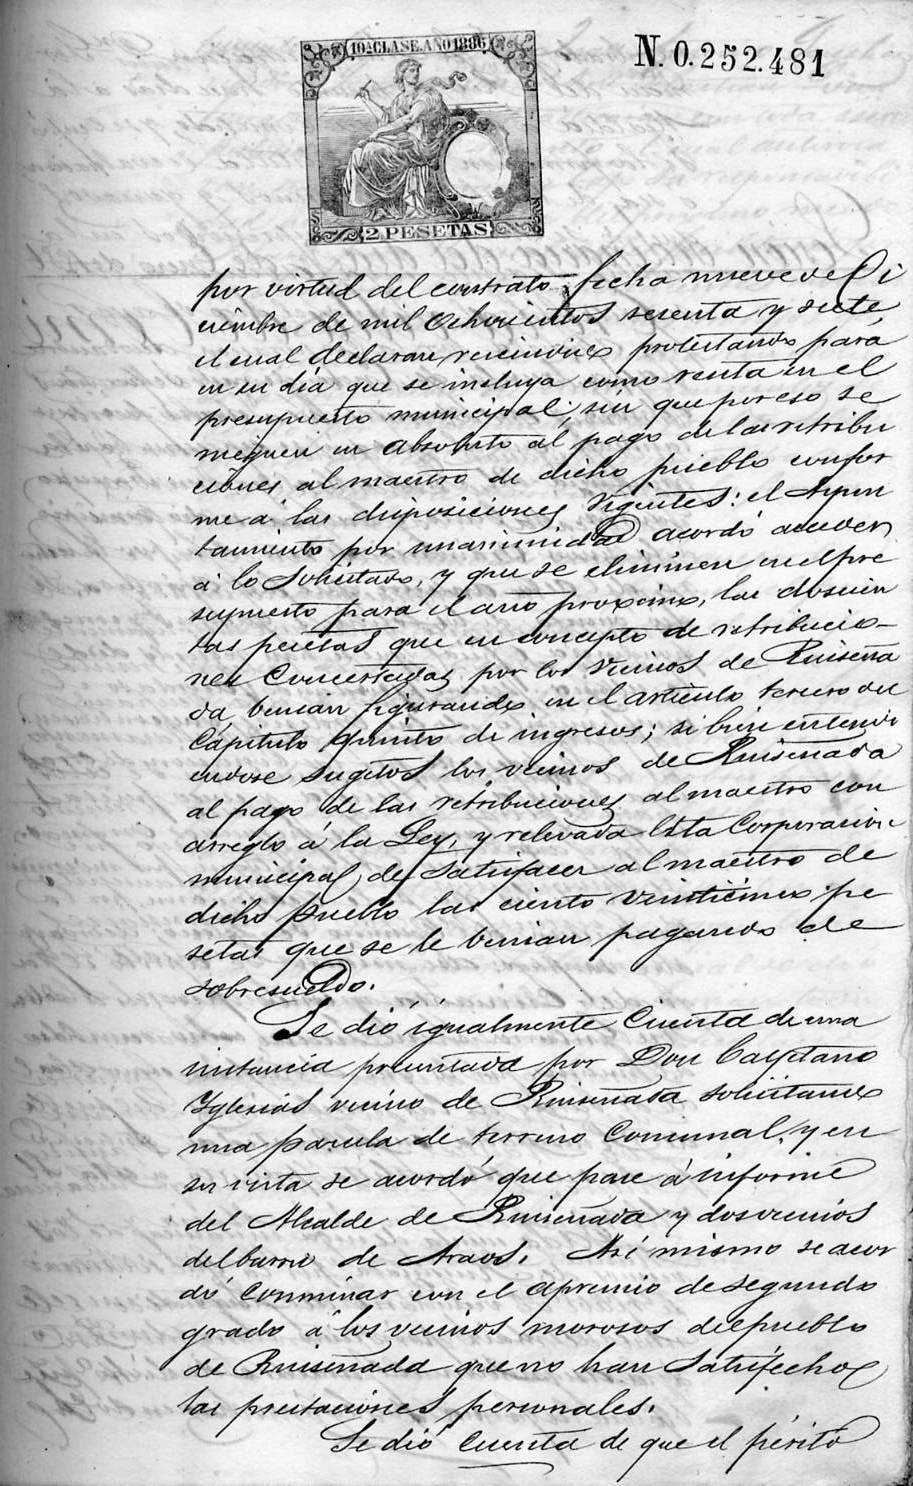 10ª CLASE. AÑO 1886
N. 0.252.481
2 PESETAS
por virtud del contrato fecha nueve de Di
ciembre de mil ochocientos sesenta y siete,
el cual declaran rescindido protestando para
en su dia que se incluya como renta en el
presupuesto municipal; sin que por eso se
nieguen en absoluto al pago de las retribu
ciones al maestro de dicho pueblo confor
me á las disposiciones vigentes: el Ayun
tamiento por unanimidad acordó acceder
á lo solicitado, y que se eliminen en el pre
supuesto para el año proximo, las doscien
tas pesetas que en concepto de retribucio-
nes concertadas por los vecinos de Ruiseña
da, benian figurando en el articulo tercero del
Capitulo quinto de ingresos; si bien entendi
endose sugetos los vecinos de Ruiseñada
al pago de las retribuciones al maestro con
arreglo á la Ley, y relevada esta Corporacion
municipal, de satisfacer al maestro de
dicho pueblo las ciento veinticinco pe
setas que se le benian pagando de
sobresueldo.
Se dió igualmente cuenta de una
instancia presentada por Don Cayetano
Yglesias vecino de Ruiseñada solicitando
una parcela de terreno comunal, y en
su vista se acordó que pase á informe
del Alcalde de Ruiseñada y dos vecinos
del barrio de Araos. Asi mismo se acor
dó conminar con el apremio de segundo
grado á los vecinos morosos del pueblo
de Ruiseñada que no han satisfecho
las prestaciones personales.
Se dió cuenta de que el périto